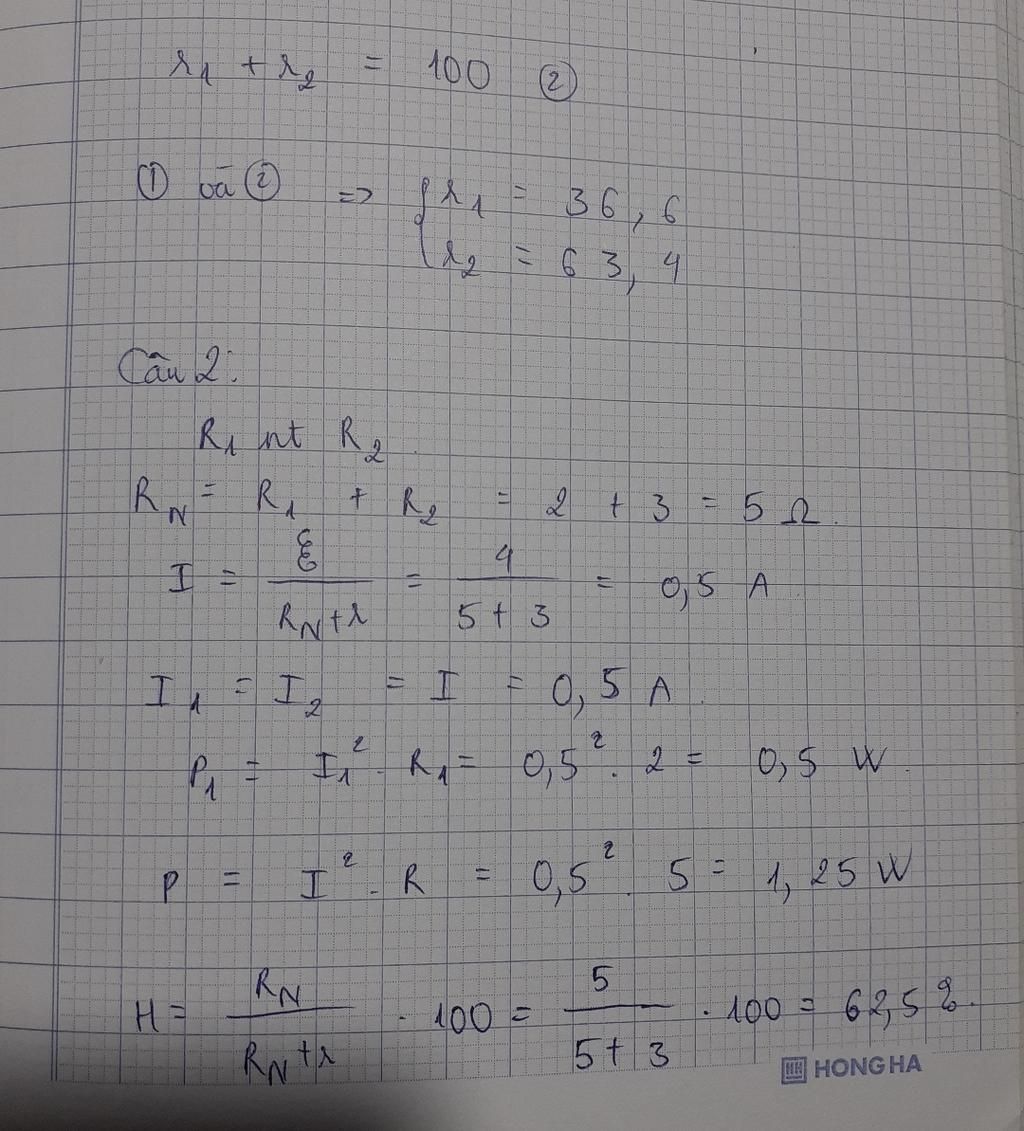 r₁ + r₂ = 100 ②
① và ② => { r₁ = 36,6
r₂ = 63,4
Câu 2:
R₁ nt R₂.
R_N = R₁ + R₂ = 2 + 3 = 5 Ω.
I = ξ / (R_N + r) = 4 / (5 + 3) = 0,5 A
I₁ = I₂ = I = 0,5 A.
P₁ = I₁² . R₁ = 0,5² . 2 = 0,5 W.
P = I² . R = 0,5² . 5 = 1,25 W
H = R_N / (R_N + r) . 100 = 5 / (5 + 3) . 100 = 62,5 %.
HONG HA